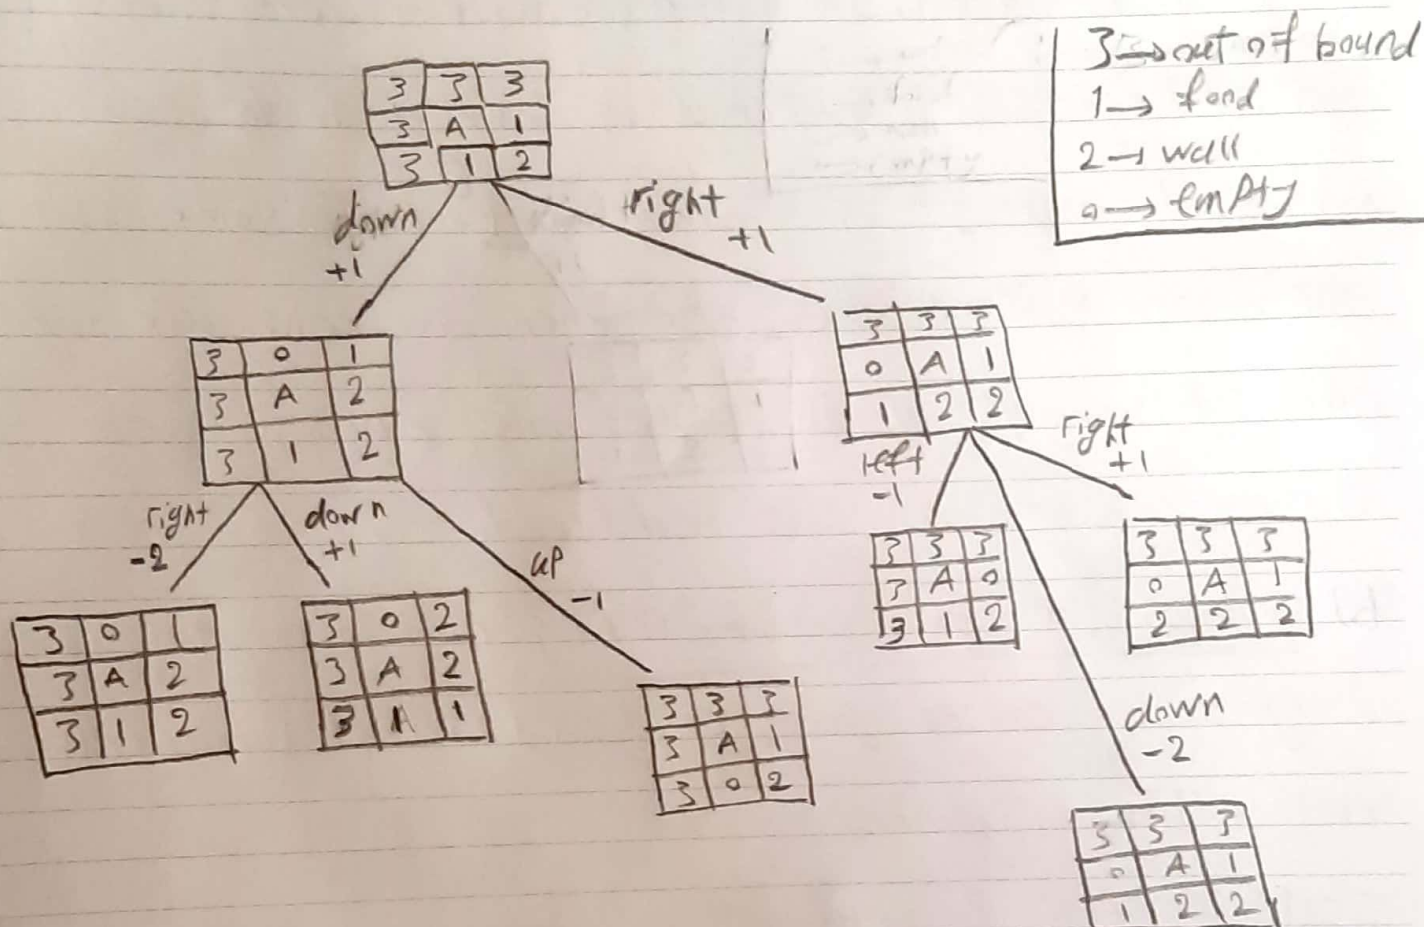 3 → out of bound
1 → food
2 → wall
0 → empty
3 3 3
3 A 1
3 1 2
down
+1
right
+1
3 0 1
3 A 2
3 1 2
3 3 3
0 A 1
1 2 2
right
-2
down
+1
up
-1
left
-1
right
+1
down
-2
3 0 1
3 A 2
3 1 2
3 0 2
3 A 2
3 1 1
3 3 3
3 A 1
3 0 2
3 3 3
3 A 0
3 1 2
3 3 3
0 A 1
2 2 2
3 3 3
0 A 1
1 2 2